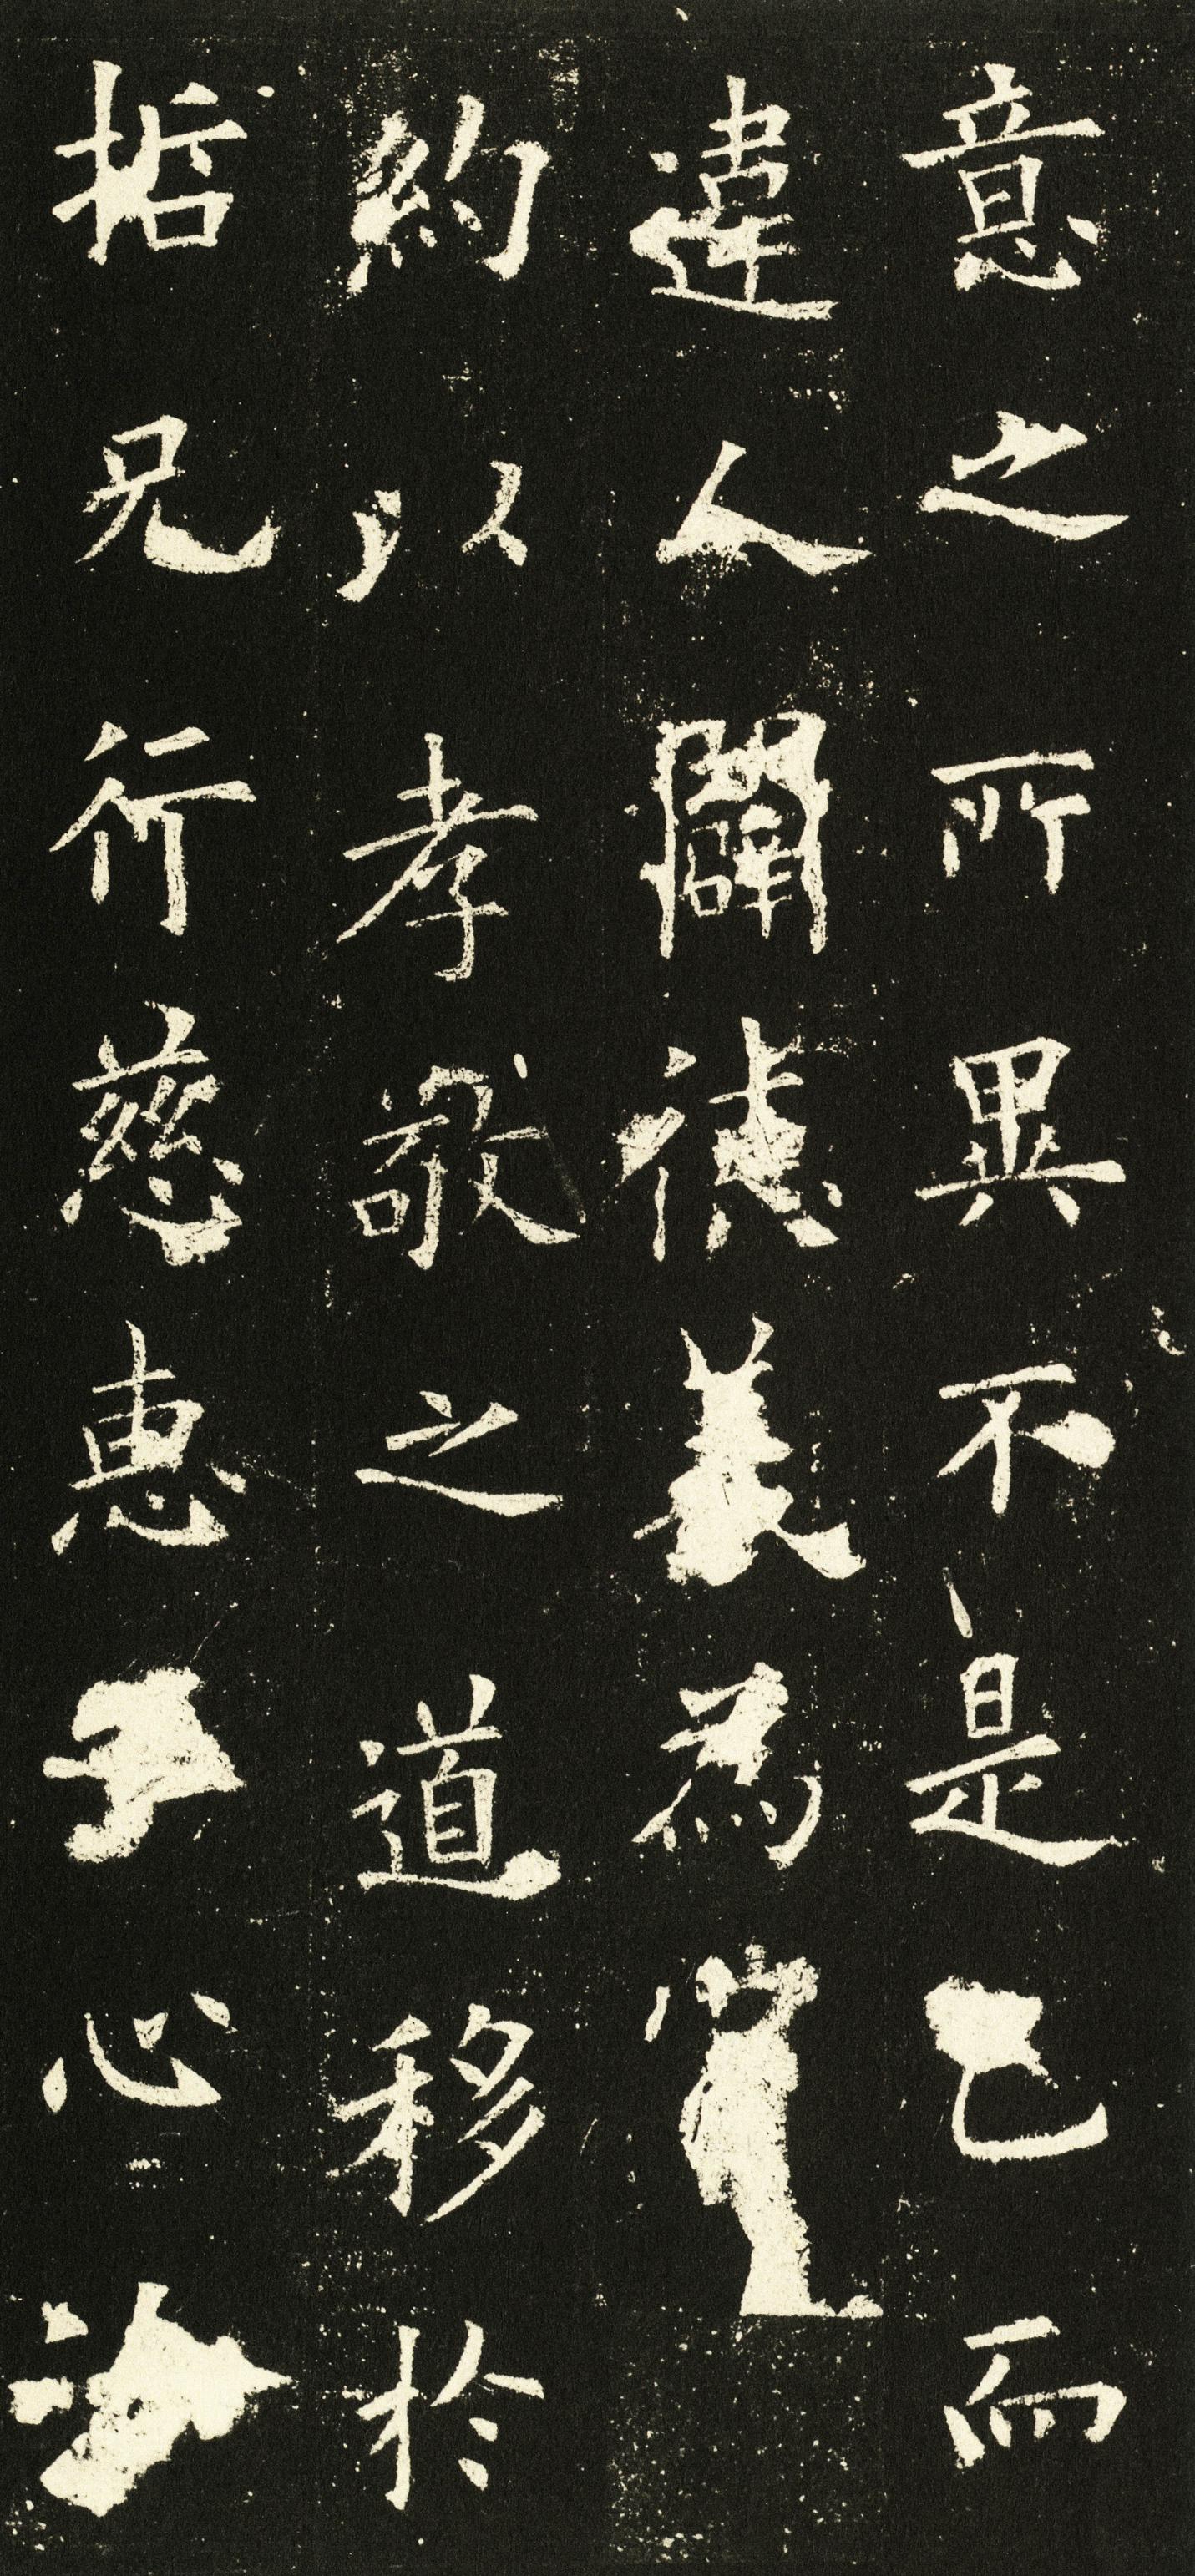 意之所異不是己而
違人闢德義為
約以孝敬之道移於
哲兄行慈惠
心